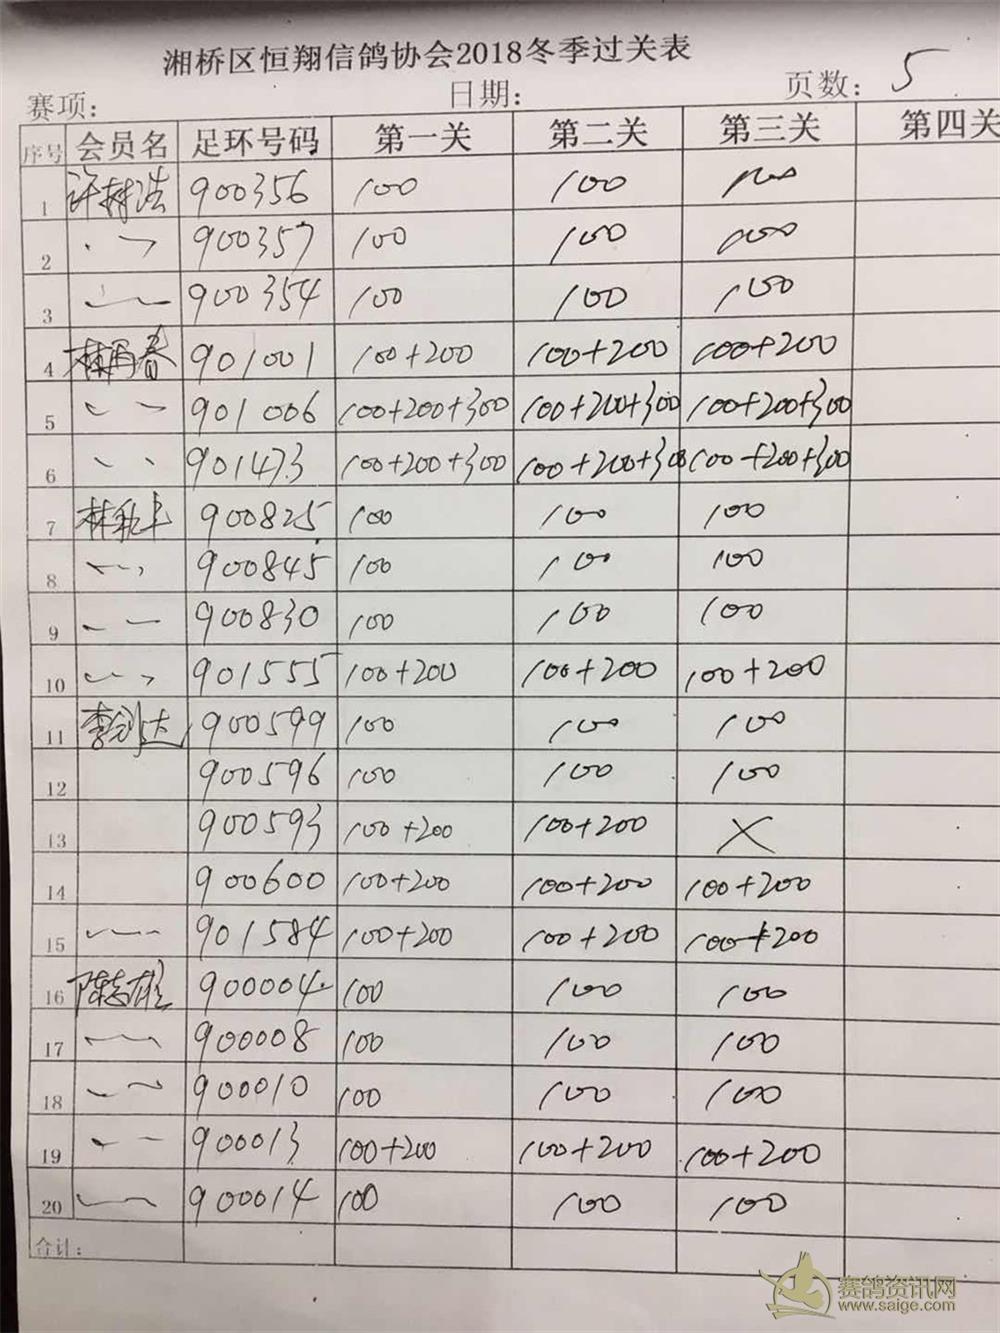 湘桥区恒翔信鸽协会2018冬季过关表
赛项: 日期: 页数: 5
序号 会员名 足环号码 第一关 第二关 第三关 第四关
1 许树浩 900356 100 100 100
2 900357 100 100 100
3 900354 100 100 100
4 林再春 901001 100+200 100+200 100+200
5 901006 100+200+300 100+200+300 100+200+300
6 901473 100+200+300 100+200+300 100+200+300
7 林 900825 100 100 100
8 900845 100 100 100
9 900830 100 100 100
10 901555 100+200 100+200 100+200
11 李剑达 900599 100 100 100
12 900596 100 100 100
13 900593 100+200 100+200 X
14 900600 100+200 100+200 100+200
15 901584 100+200 100+200 100+200
16 陈志雄 900004 100 100 100
17 900008 100 100 100
18 900010 100 100 100
19 900013 100+200 100+200 100+200
20 900014 100 100 100
合计:
赛鸽资讯网
www.saige.com